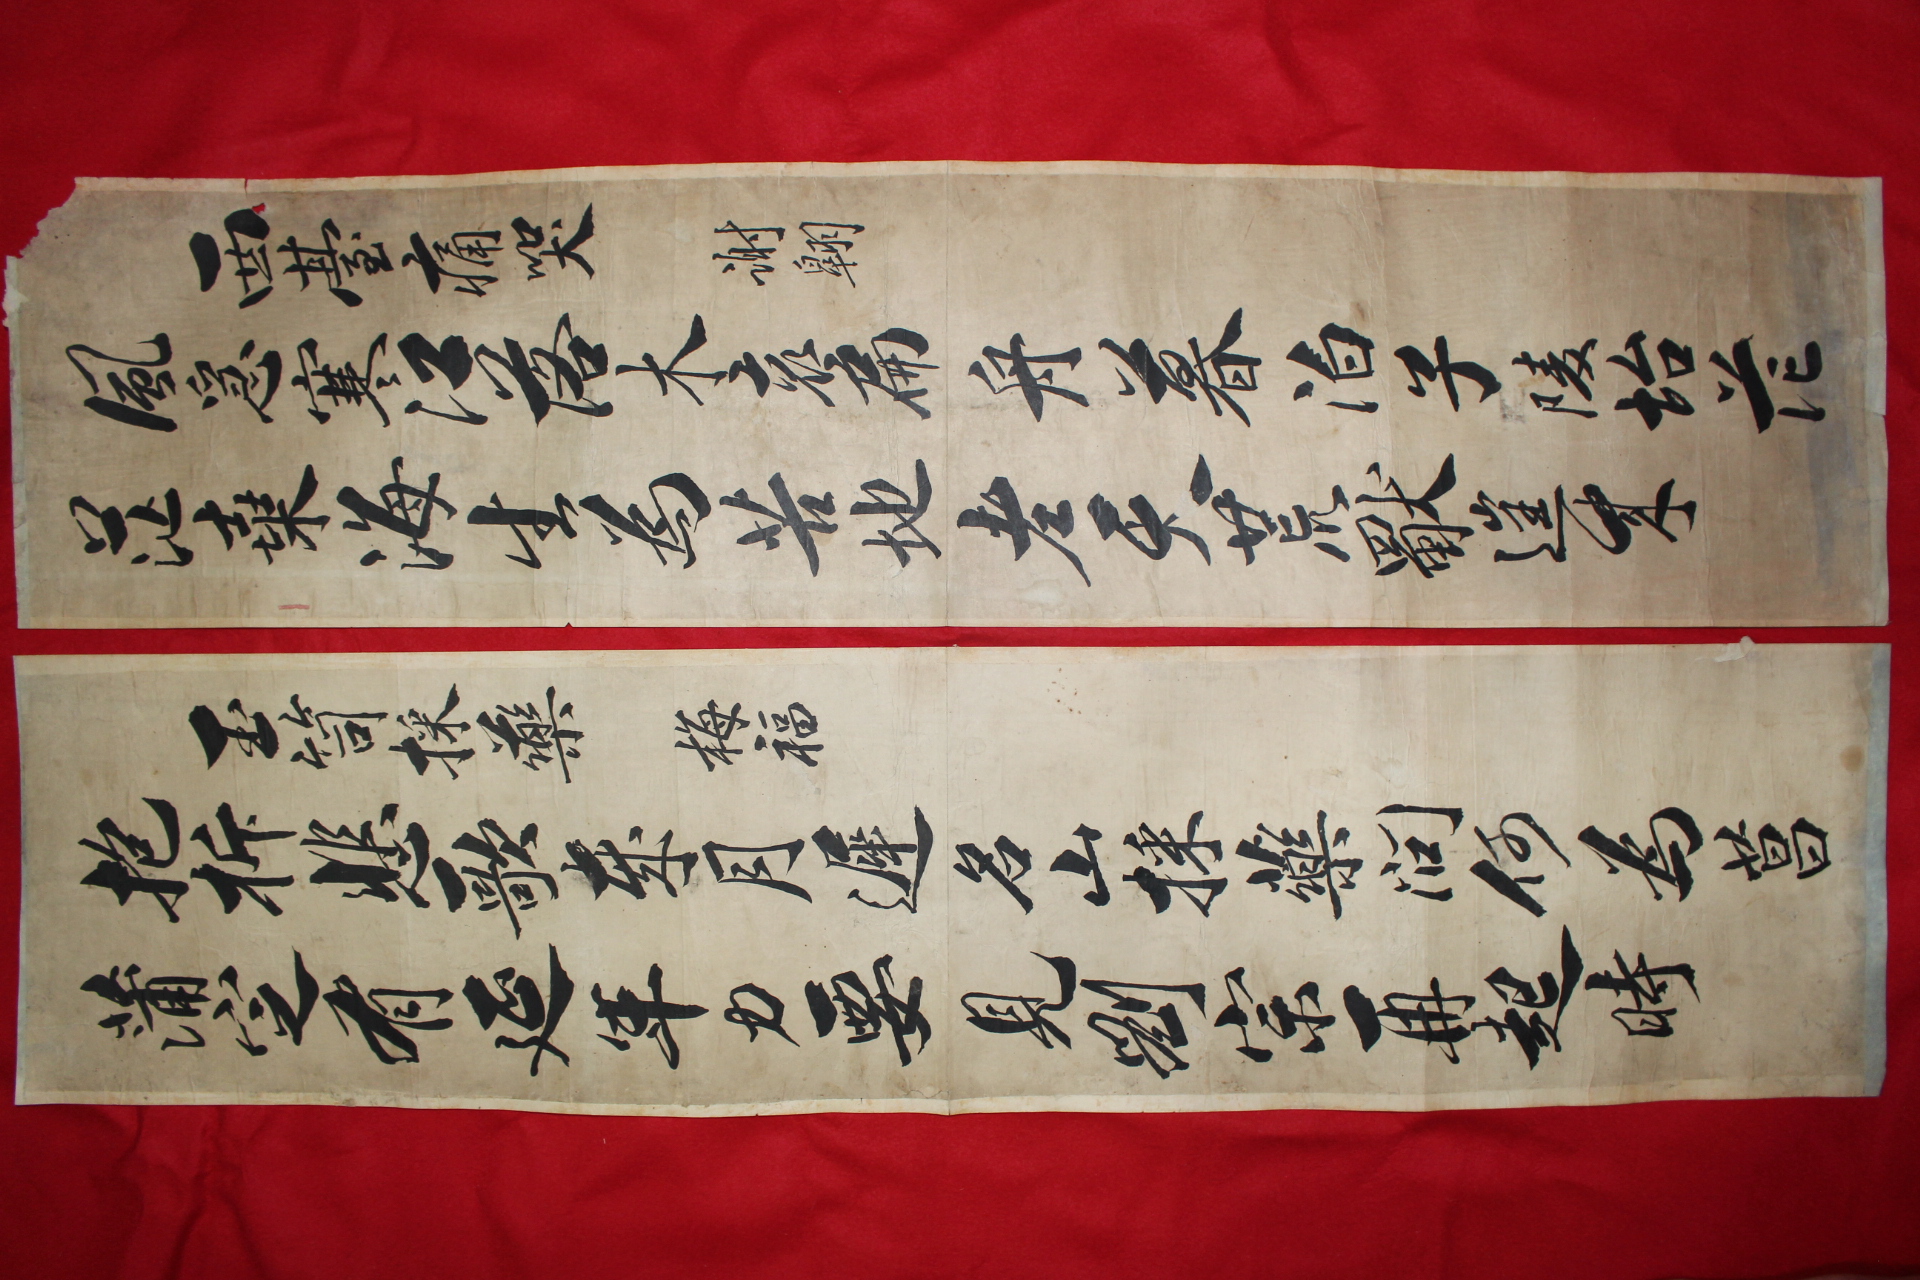 西臺痛哭 謝翶
風急寒江落木哀扁舟暮泊子陵坮茫
茫桑海生為苦地老天荒獸來
玉笥採藥 梅福
抱柝悲歌歲月遲名山採藥問何為菖
蒲定有延年力要見劉宗再起時